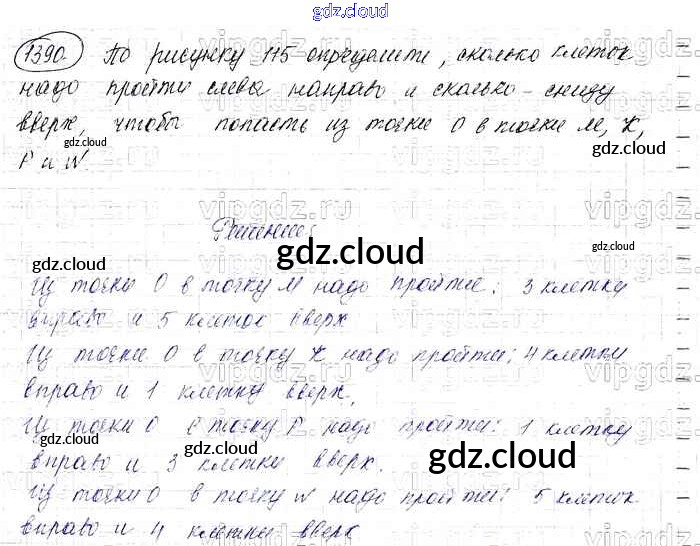 gdz.cloud
1390. По рисунку 115 определите, сколько клеток
надо пройти слева направо и сколько - снизу
вверх, чтобы попасть из точки O в точки M, K,
P и N.
Решение:
Из точки O в точку M надо пройти: 3 клетки
вправо и 5 клеток вверх
Из точки O в точку K надо пройти: 4 клетки
вправо и 1 клетку вверх.
Из точки O в точку P надо пройти: 1 клетку
вправо и 3 клетки вверх.
Из точки O в точку N надо пройти: 5 клеток
вправо и 4 клетки вверх
gdz.cloud
gdz.cloud
gdz.cloud
gdz.cloud
gdz.cloud
gdz.cloud
gdz.cloud
gdz.cloud
gdz.cloud
gdz.cloud
vipgdz.ru
vipgdz.ru
vipgdz.ru
vipgdz.ru
vipgdz.ru
vipgdz.ru